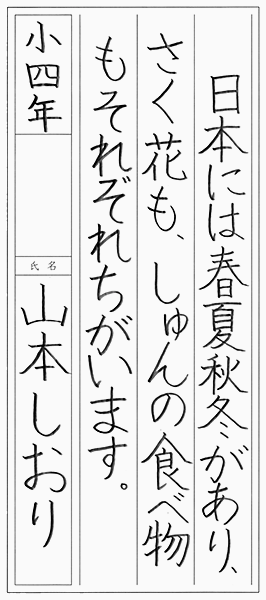 日本には春夏秋冬があり、
さく花も、しゅんの食べ物
もそれぞれちがいます。
小四年
氏名
山本しおり